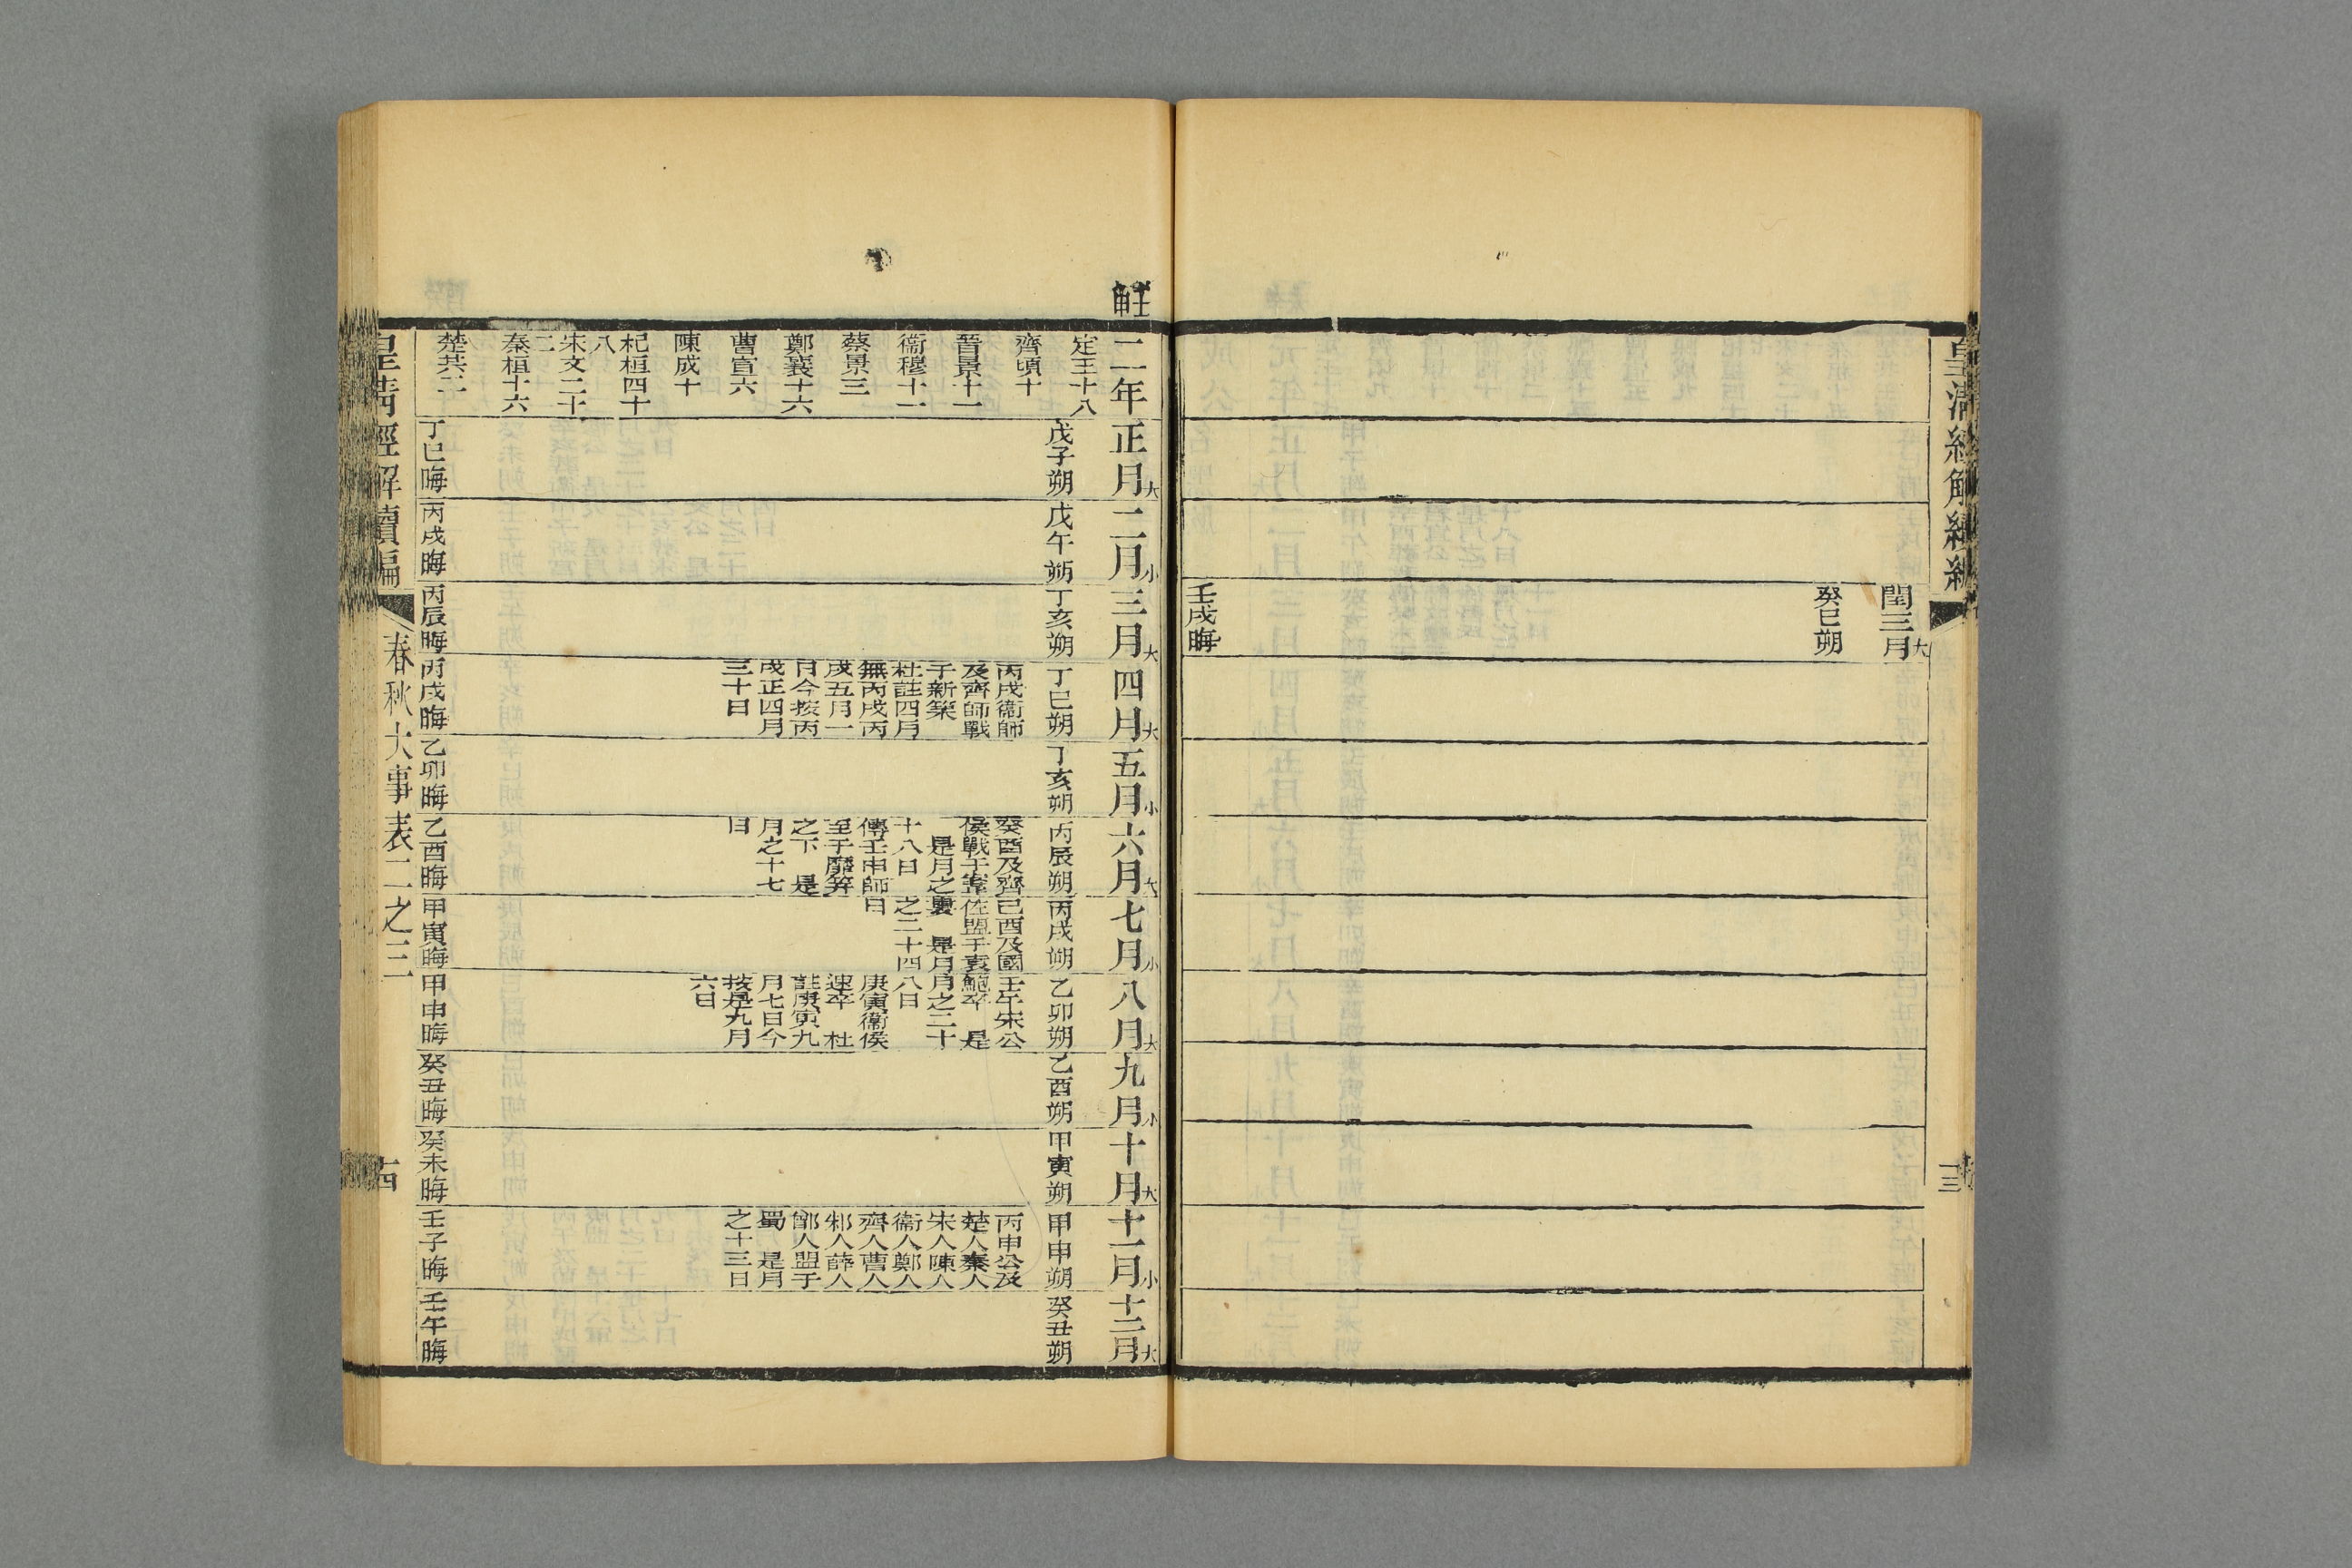 皇清經解續編
十三
閏三月大
癸巳朔
壬戌晦
二年
定王十八
齊頃十
晉景十一
衞穆十一
蔡景三
鄭襄十六
曹宣六
陳成十
杞桓四十
八
宋文二十
二
秦桓十六
楚共二
正月大
戊子朔
丁巳晦
二月小
戊午朔
丙戌晦
三月大
丁亥朔
丙辰晦
四月大
丁巳朔
丙戌衞師
及齊師戰
于新築
杜註四月
無丙戌丙
戌五月一
日今按丙
戌正四月
三十日
丙戌晦
五月小
丁亥朔
乙卯晦
六月大
丙辰朔
癸酉及齊
侯戰于鞌
是月之
十八日
傳壬申師
至于靡笄
之下 是
月之十七
日
乙酉晦
七月小
丙戌朔
己酉及國
佐盟于袁
婁 是月
之二十四
日
甲寅晦
八月大
乙卯朔
壬午宋公
鮑卒 是
月之二十
八日
庚寅衞侯
速卒 杜
註庚寅九
月七日今
按是九月
六日
甲申晦
九月小
乙酉朔
癸丑晦
十月大
甲寅朔
癸未晦
十一月小
甲申朔
丙申公及
楚人秦人
宋人陳人
衞人鄭人
齊人曹人
邾人薛人
鄫人盟于
蜀 是月
之十三日
壬子晦
十二月大
癸丑朔
壬午晦
皇清經解續編
春秋大事表二之三
十四